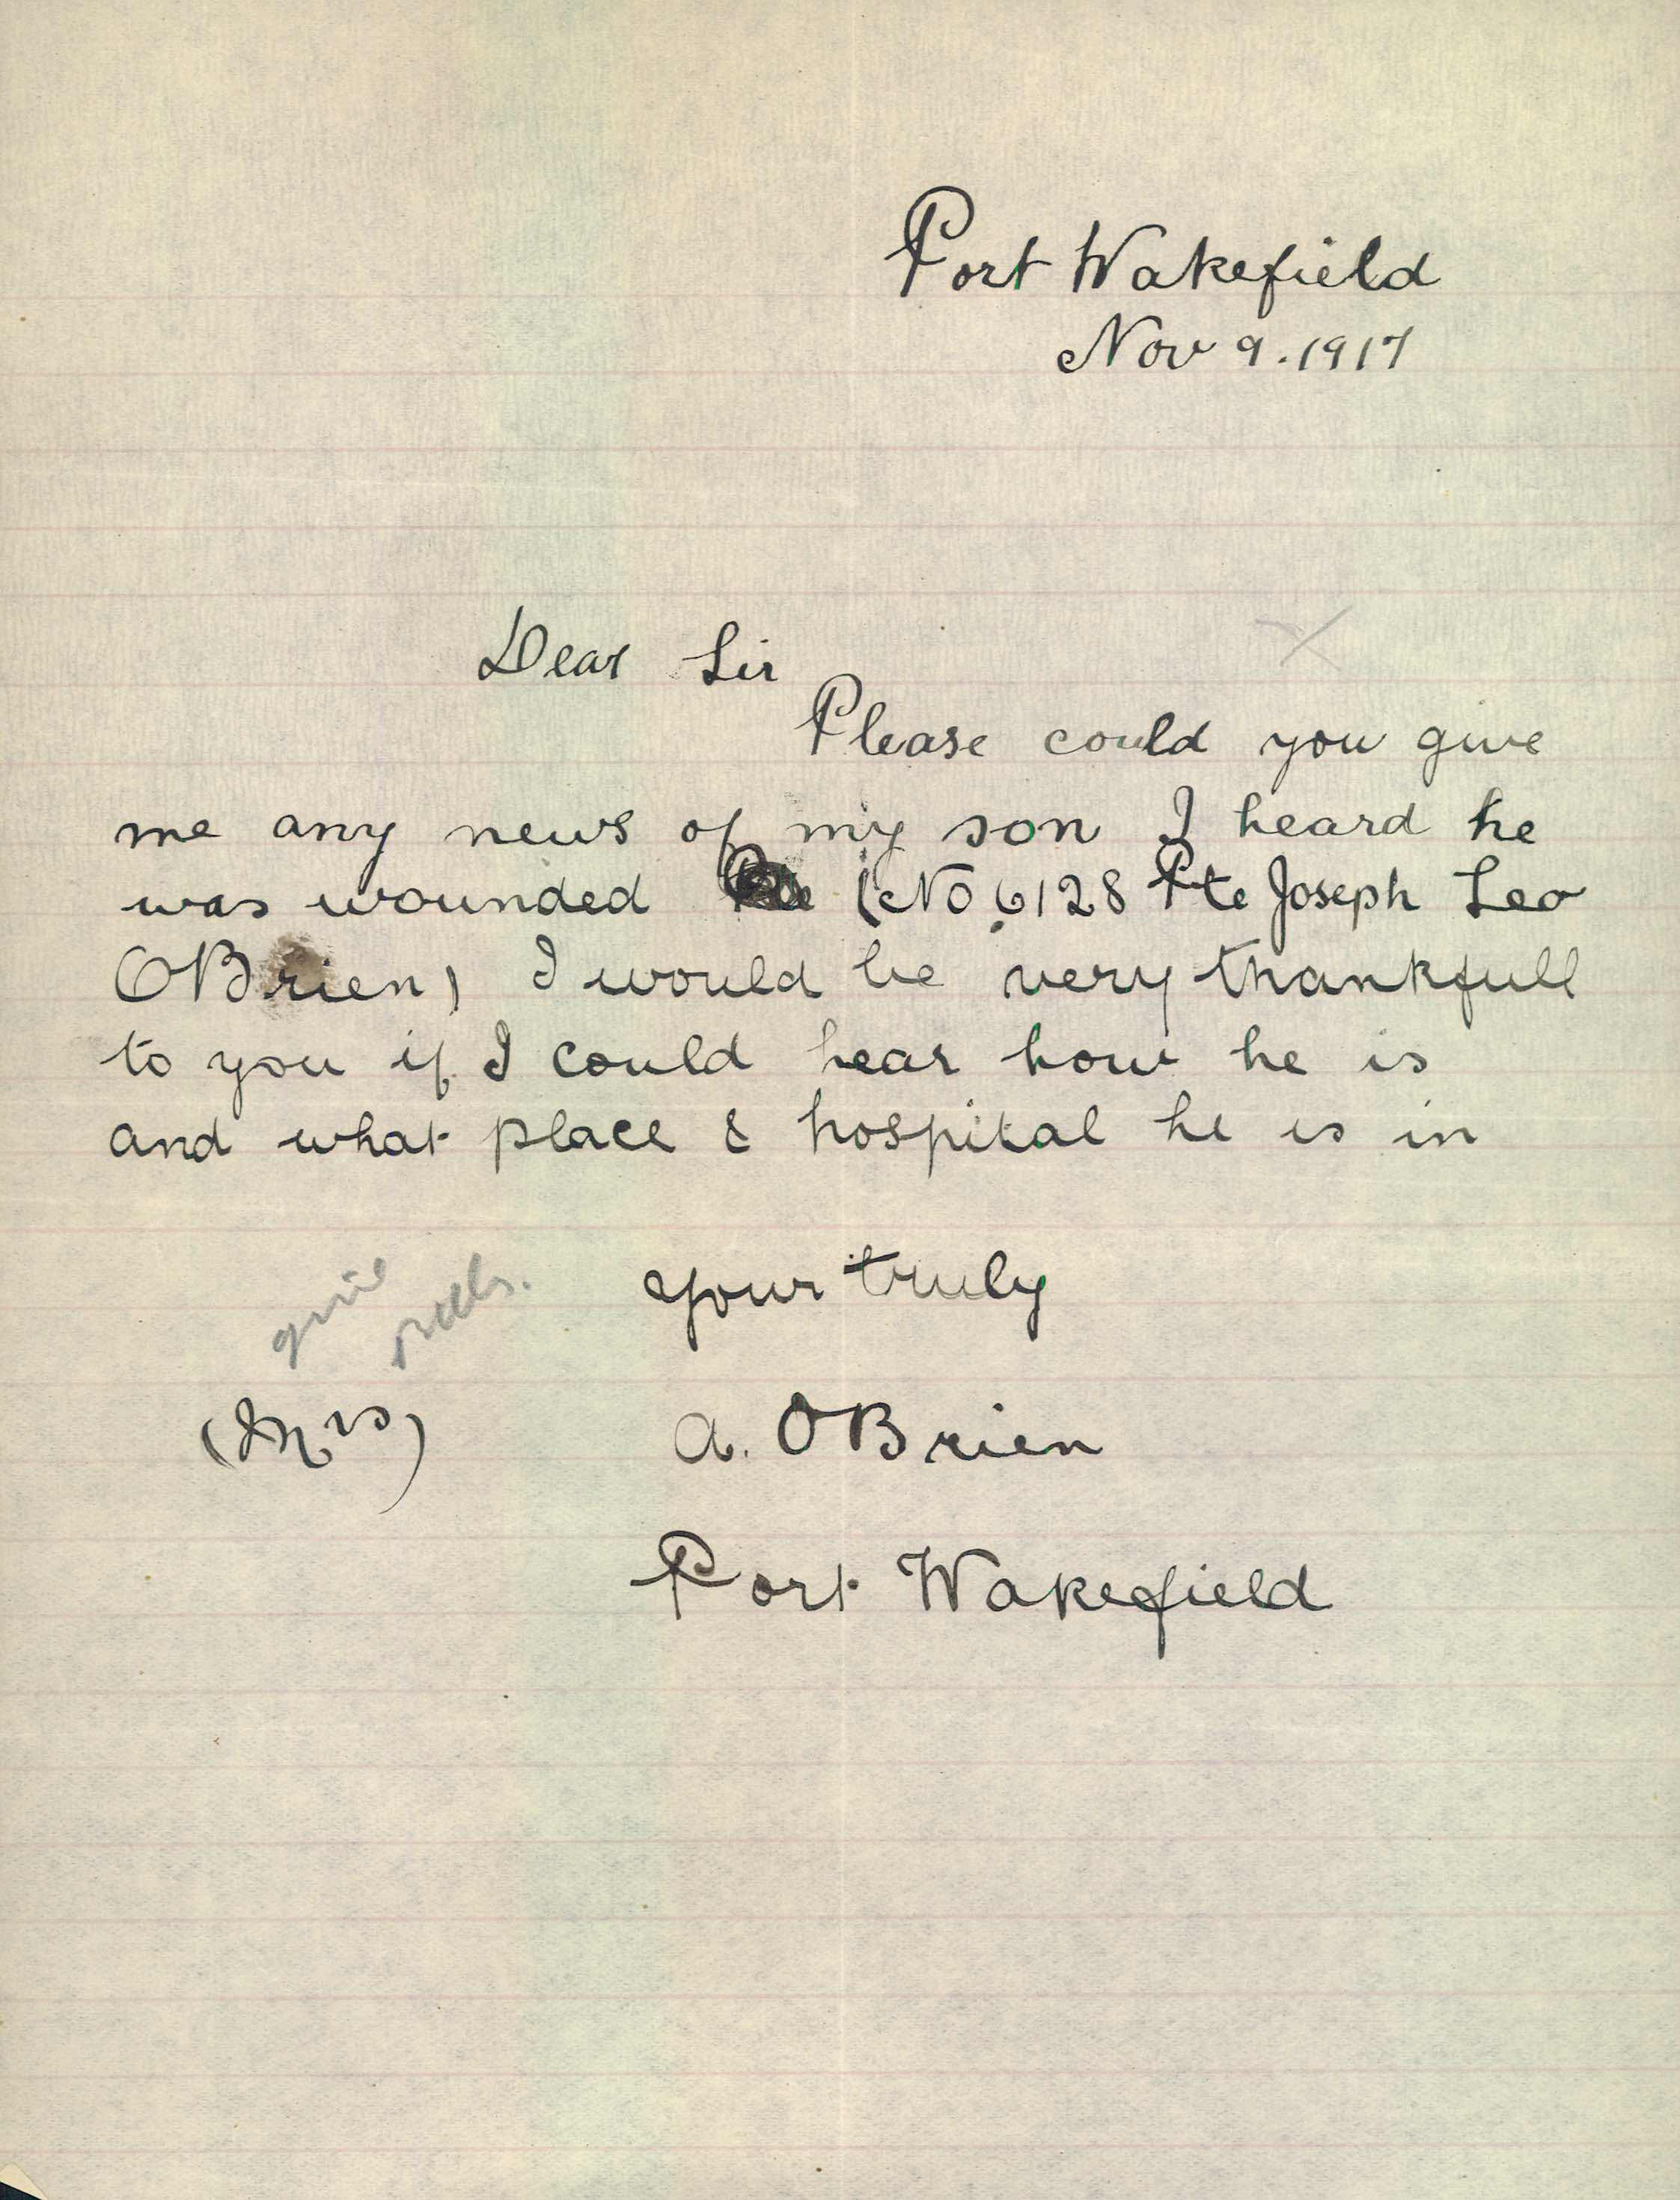 Port Wakefield
Nov 9. 1917
Dear Sir
Please could you give
me any news of my son I heard he
was wounded (No 6128 Pte Joseph Leo
OBrien) I would be very thankfull
to you if I could hear how he is
and what place & hospital he is in
give
your truly
(Mrs) A. OBrien
Port Wakefield